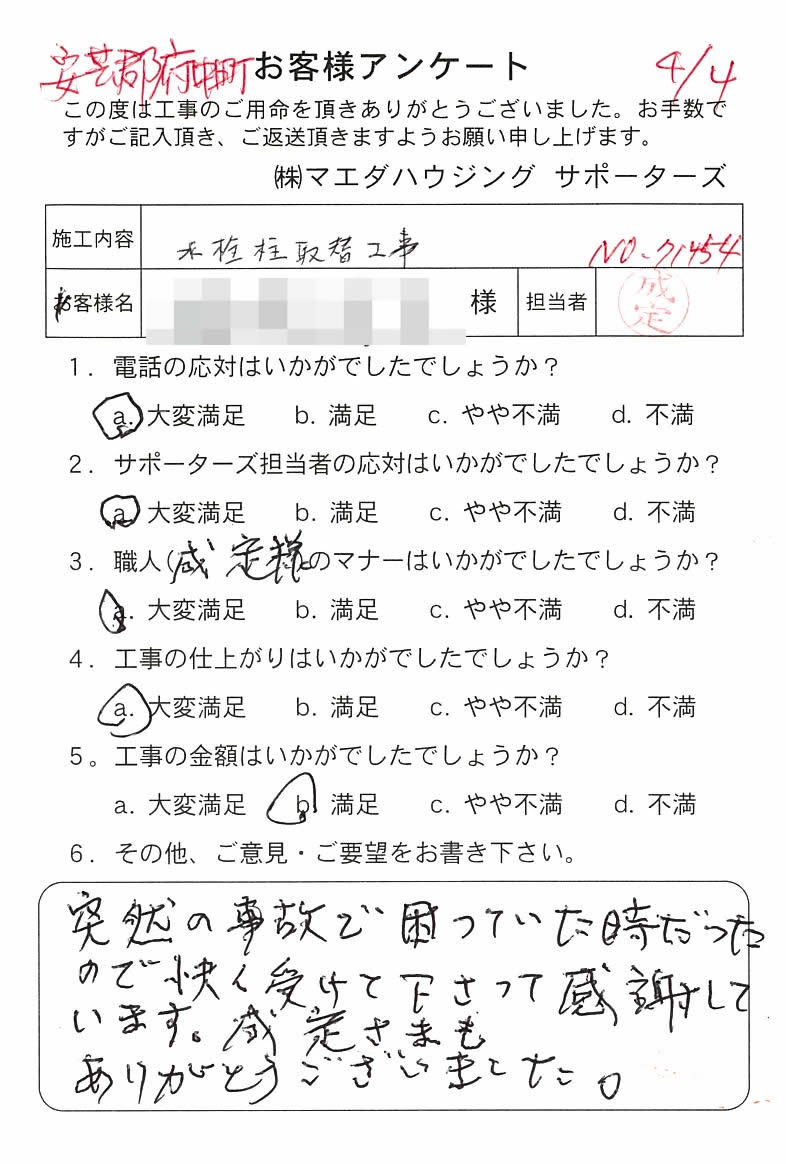 安芸郡府中町 お客様アンケート 4/4
この度は工事のご用命を頂きありがとうございました。お手数で
すがご記入頂き、ご返送頂きますようお願い申し上げます。
㈱マエダハウジング サポーターズ
施工内容 水栓柱取替工事 NO.71454
お客様名 様 担当者 成定
1. 電話の応対はいかがでしたでしょうか？
a. 大変満足 b. 満足 c. やや不満 d. 不満
2. サポーターズ担当者の応対はいかがでしたでしょうか？
a. 大変満足 b. 満足 c. やや不満 d. 不満
3. 職人(成定様)のマナーはいかがでしたでしょうか？
a. 大変満足 b. 満足 c. やや不満 d. 不満
4. 工事の仕上がりはいかがでしたでしょうか？
a. 大変満足 b. 満足 c. やや不満 d. 不満
5。工事の金額はいかがでしたでしょうか？
a. 大変満足 b. 満足 c. やや不満 d. 不満
6. その他、ご意見・ご要望をお書き下さい。
突然の事故で困っていた時だった
ので快く受けて下さって感謝して
います。成定さまも
ありがとうございました。